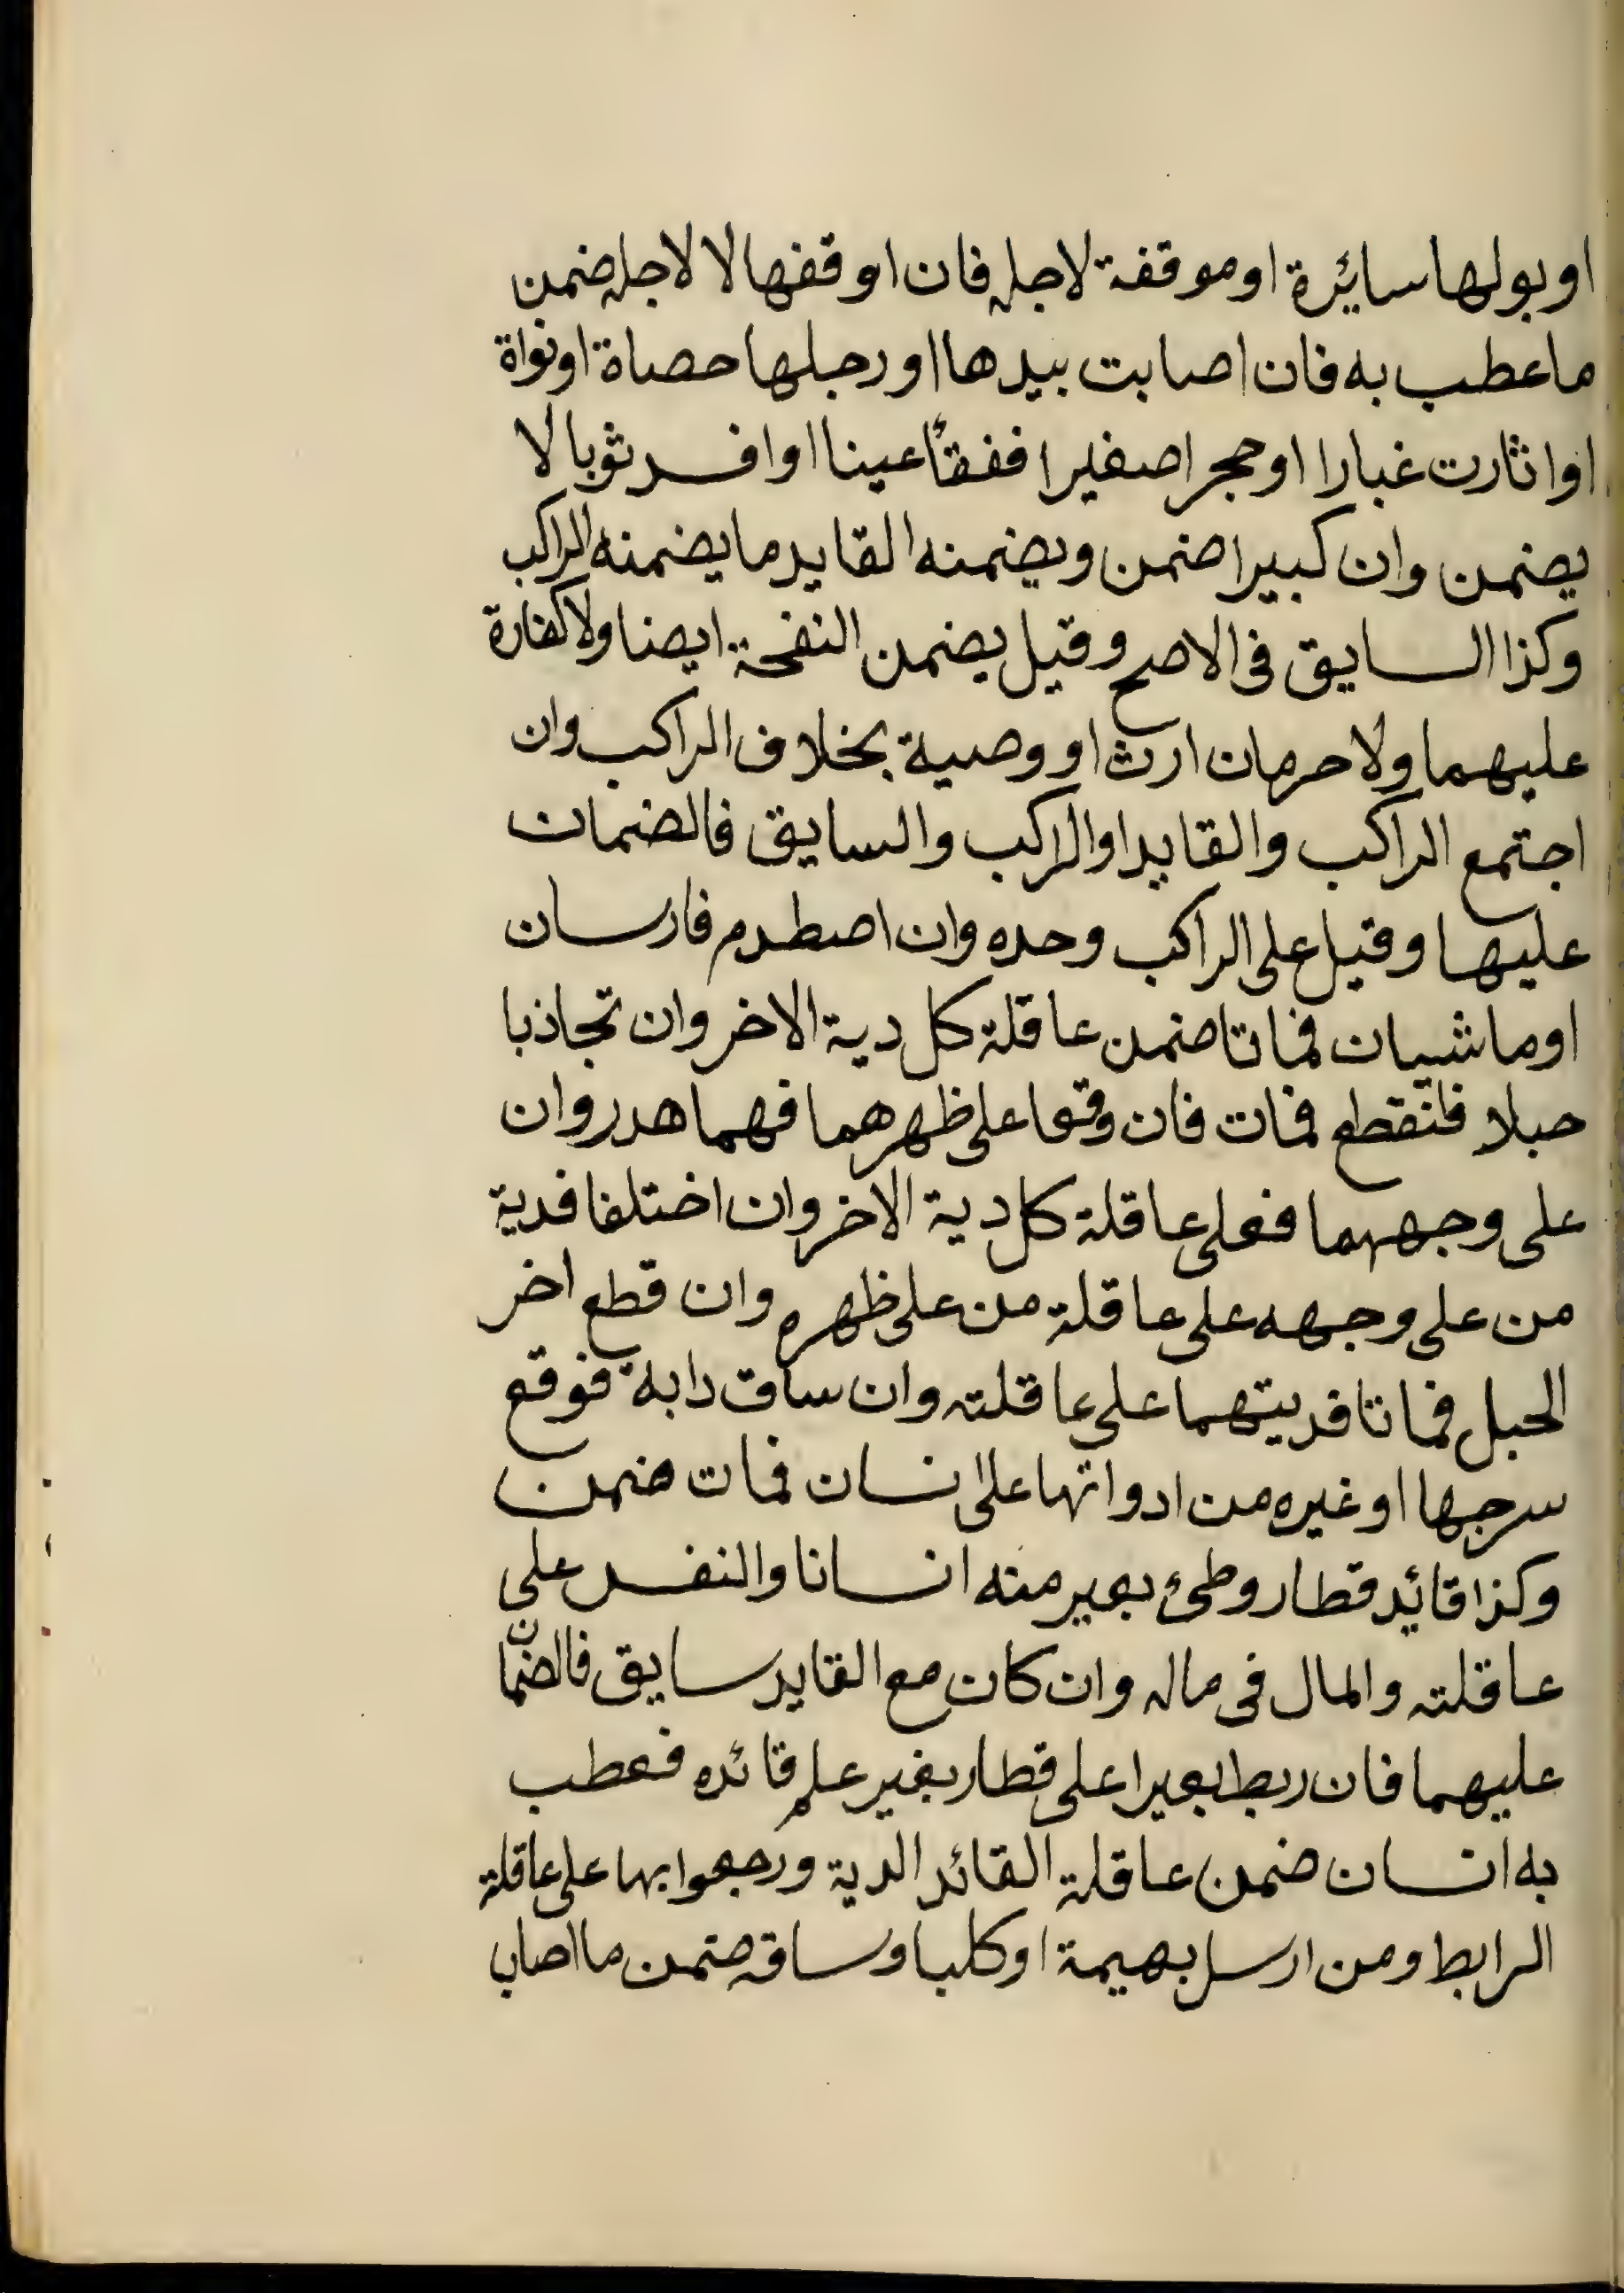 او بولها سائرة او موقفة لاجله فان اوقفها لا لاجله ضمن
ما عطب به فان اصابت بيدها او رجلها حصاة او نواة
او اثارت غبارا او حجرا صغيرا ففقأ عينا او افسد ثوبا لا
يضمن وان كبيرا ضمن ويضمنه القايد ما يضمنه الراكب
وكذا السايق فى الاصح وقيل يضمن النفحة ايضا ولا كفارة
عليهما ولا حرمان ارث او وصية بخلاف الراكب وان
اجتمع الراكب والقايد او الراكب والسايق فالضمان
عليها وقيل على الراكب وحده وان اصطدم فارسان
او ماشيان فماتا ضمن عاقلة كل دية الاخر وان تجاذبا
حبلا فانقطع فمات فان وقعا على ظهرهما فهما هدر وان
على وجههما فعلى عاقلة كل دية الاخر وان اختلفا فدية
من على وجهه على عاقلة من على ظهره وان قطع اخر
الحبل فماتا فديتهما على عاقلته وان ساق دابة فوقع
سرجها او غيره من ادواتها على انسان فمات ضمن
وكذا قائد قطار وطئ بعير منه انسانا والنفس على
عاقلته والمال فى ماله وان كان مع القايد سايق فالضمان
عليهما فان ربط بعيرا على قطار بغير علم قائده فعطب
به انسان ضمن عاقلة القائد الدية ورجعوا بها على عاقلة
الرابط ومن ارسل بهيمة او كلبا وساقه ضمن ما اصاب